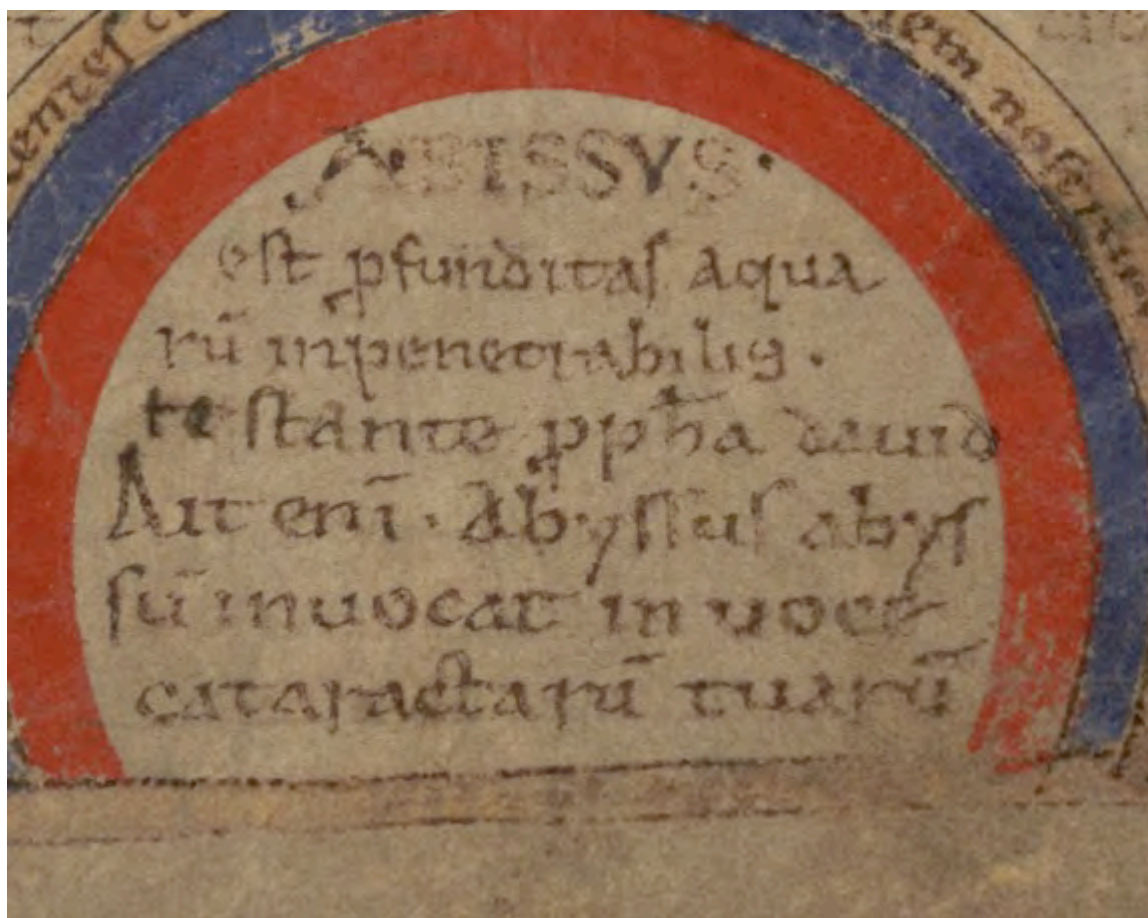 ABISSVS·
est ꝓfunditas aqua
rū inpenetrabilis·
testante ꝓph̄a dauid
Ait eni̅· Abyssus abys
sū inuocat in uoce
cataractarū tuarū